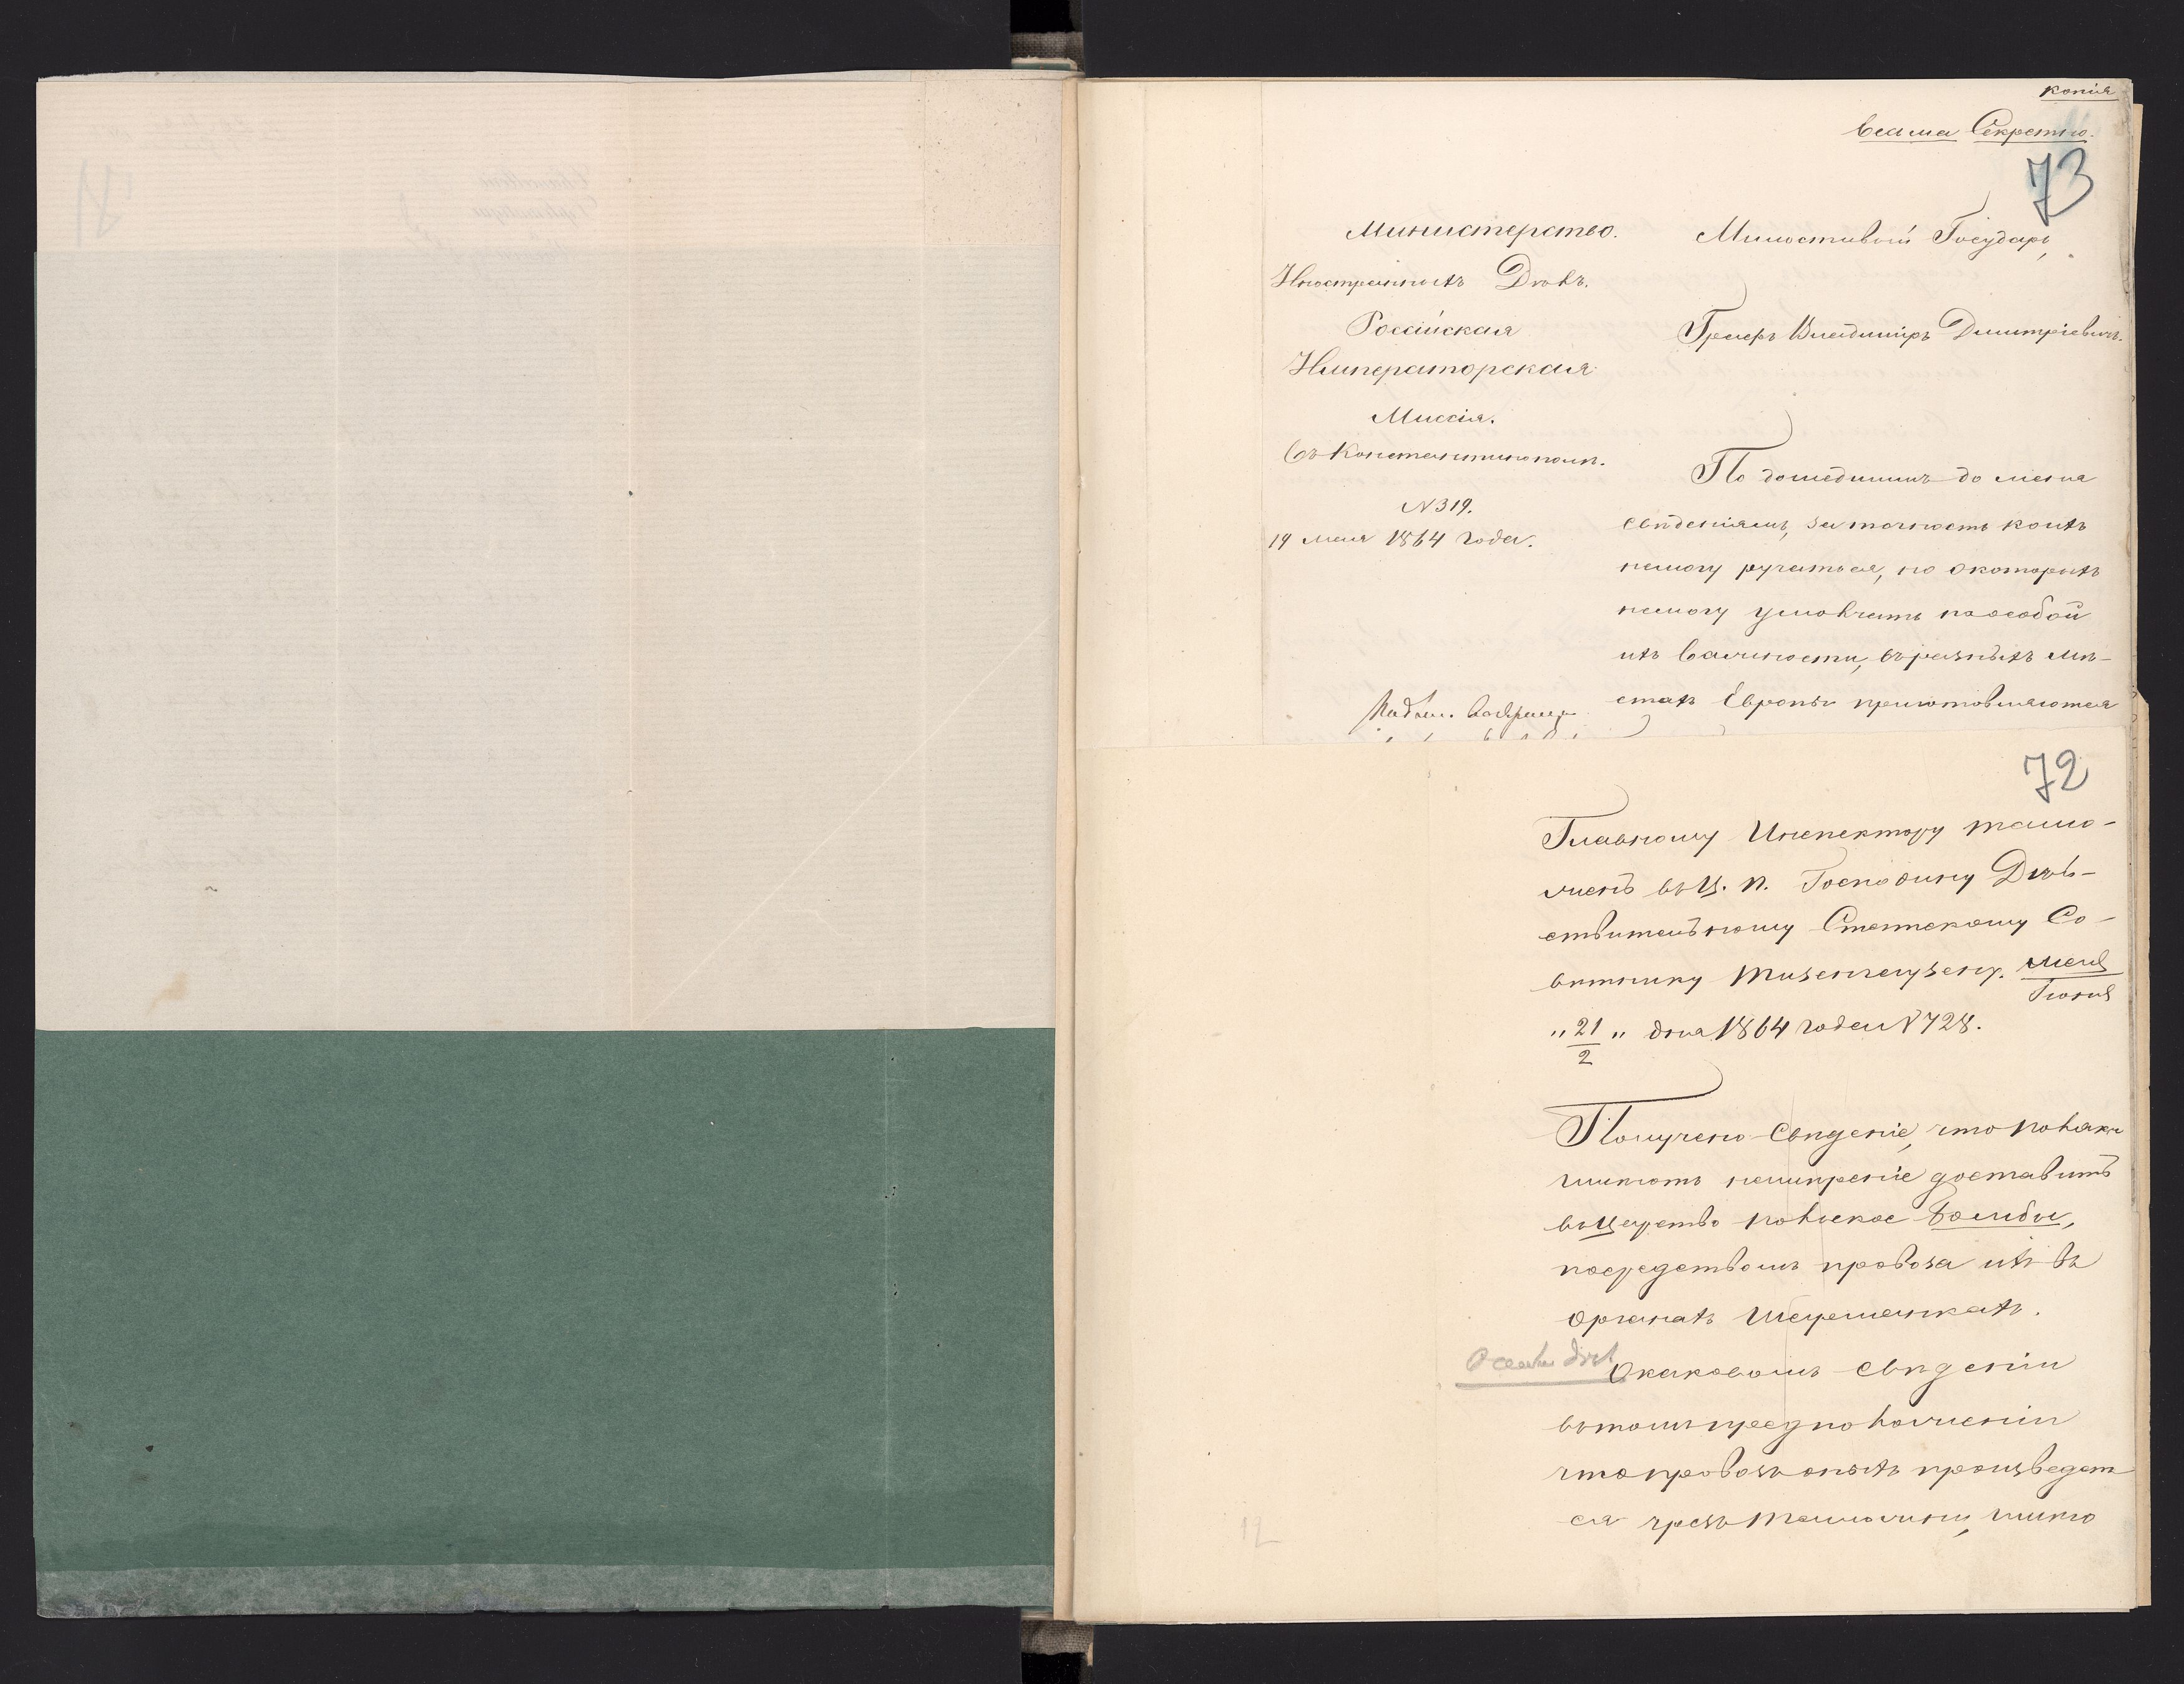 копія
Весьма Секретно.
73
Министерство
Иностранныхъ Дѣлъ.
Россійская
Императорская
Миссія.
Въ Константинополѣ.
N 319.
19 мая 1864 года.
Милостивый Государь,
Владиміръ Дмитріевичъ.
По дошедшимъ до меня
свѣденіямъ, за точность коихъ
немогу ручаться, но окоторыхъ
немогу умолчать по особой
ихъ важности, въ разныхъ мѣ-
стах Европы приготовляются
72
Главному Инспектору тамо-
жень въ Ц. П. Господину Дѣй-
ствительному Статскому Со-
вѣтнику Тизенгаузену. мая
Іюня
„ 21 „ дня 1864 года N 728.
2
Получено свѣденіе, что поляки
имѣютъ намѣреніе доставить
въ Царство польское бомбы,
посредствомъ провоза ихъ въ
органахъ шарманкахъ.
О каковомъ свѣденіи
въ томъ предположеніи
что провозъ оныхъ произведет
ся чрезъ таможни, имѣю
12